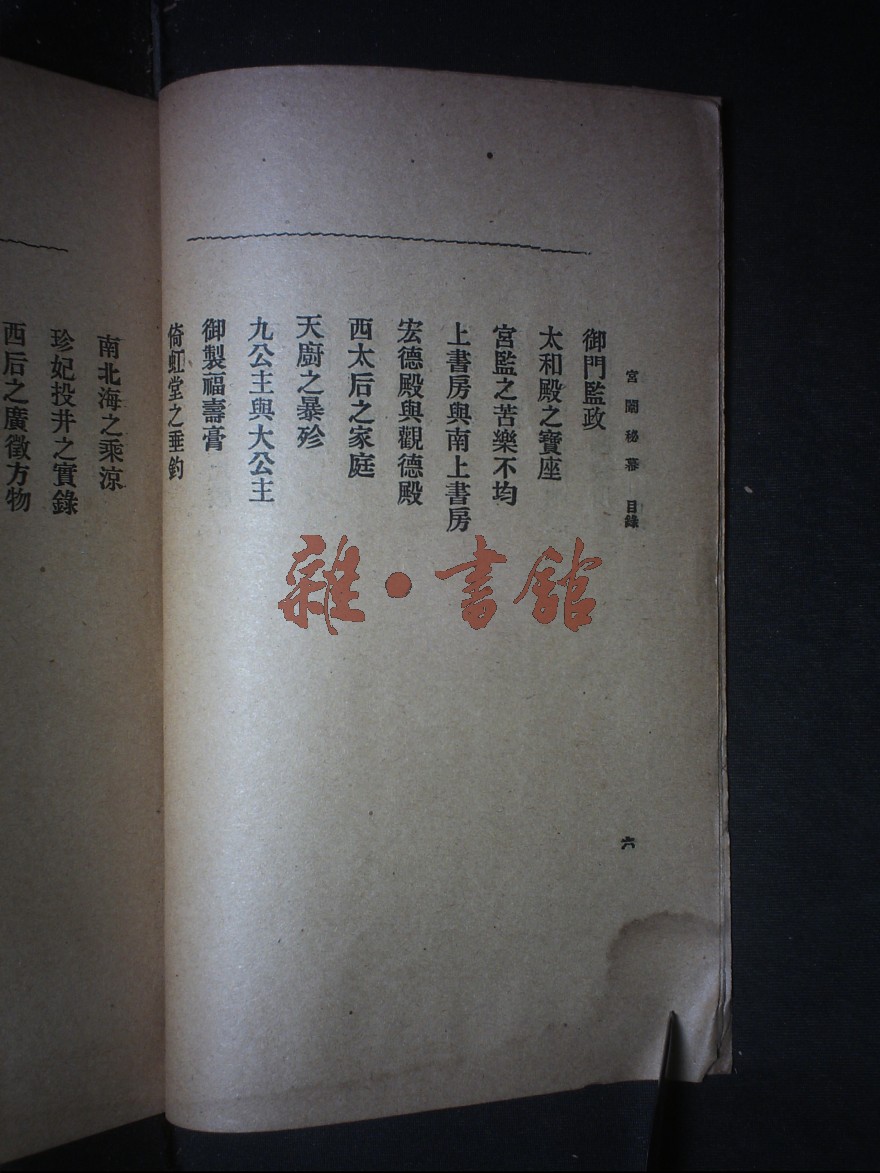 宮闈秘幕 目錄
御門監政
太和殿之寶座
宮監之苦樂不均
上書房與南上書房
宏德殿與觀德殿
西太后之家庭
天廚之暴殄
九公主與大公主
御製福壽膏
倚虹堂之垂釣
六
雜·書館
南北海之乘涼
珍妃投井之實錄
西后之廣徵方物